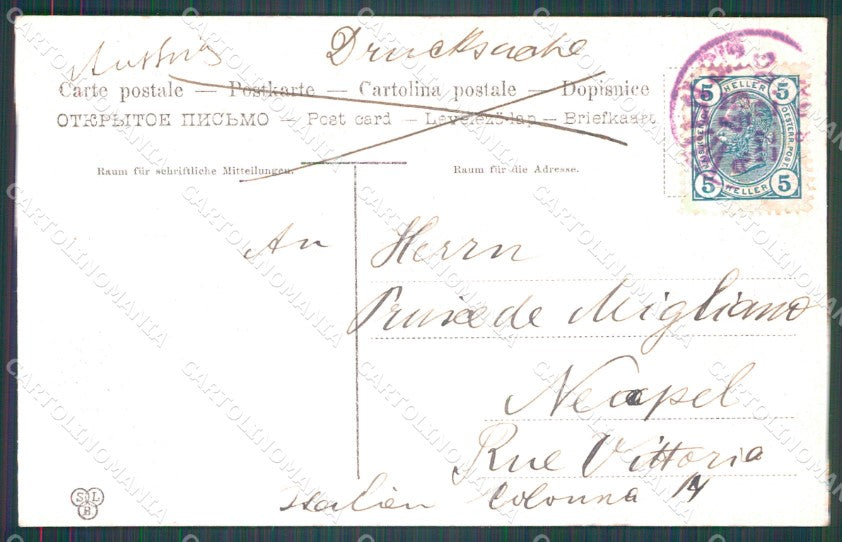 Austria Drucksache
Carte postale — Postkarte — Cartolina postale — Dopisnice
ОТКРЫТОЕ ПИСЬМО — Post card — Levelező-lap — Briefkaart
Raum für schriftliche Mitteilungen. Raum für die Adresse.
5 HELLER 5
OESTERR. POST
5 HELLER 5
An Herrn
de Migliano
Neapel
Rue Vittoria
Italien Colonna 14
SLB
CARTOLINOMANIA